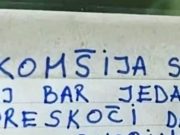 KOMŠIJA S
J BAR JEDA
PRESKOČI D